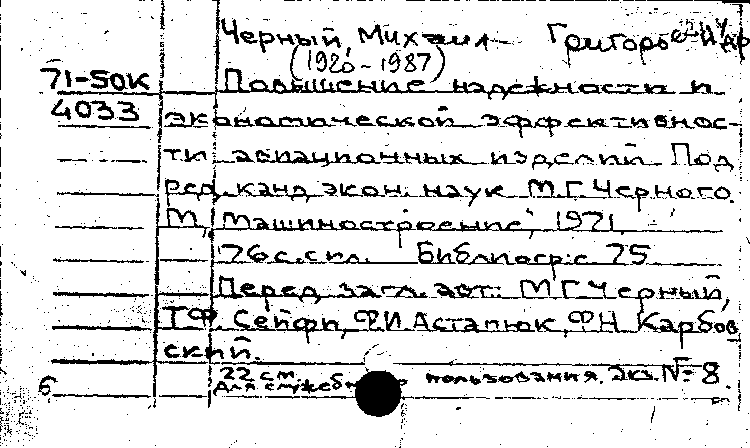 Черный, Михаил Григорьевич и др
(1920-1987)
71-50К Повышение надежности и
4033 экономической эффективнос-
ти авиационных изделий. Под
ред. канд экон. наук М.Г. Черного.
М, "Машиностроение", 1971.
76 с. с ил. Библиогр: с 75
Перед загл. авт.: М.Г. Черный,
Т.Ф. Сейфи, Ф.И. Астапюк, Ф.Н. Карбов
ский.
22 см.
Для служебного пользования. Экз. № 8.
б